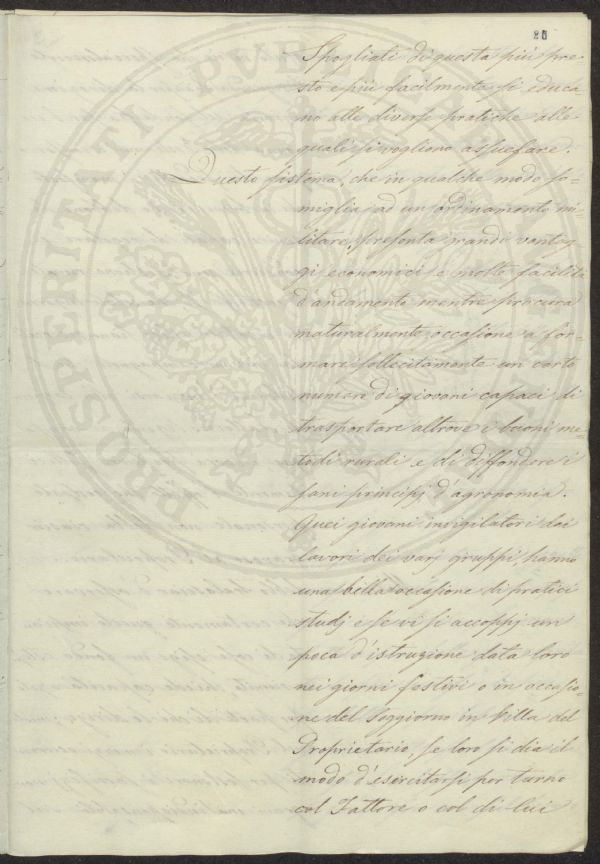 20
Spogliati di questa più pre-
sto e più facilmente si educa
no alle diverse pratiche alle
quali si vogliono assuefare.
Questo sistema, che in qualche modo so-
miglia ad un ordinamento mi-
litare, presenta grandi vantag-
gi economici e molte facilità
d'andamento mentre procura
naturalmente occasione a for-
mare sollecitamente un certo
numero di giovani capaci di
trasportare altrove i buoni me-
todi rurali e di diffondere i
sani principj d'agronomia.
Quei giovani invigilatori dei
lavori dei varj gruppi, hanno
una bella occasione di pratici
studj e se vi si accoppj un
poca d'istruzione data loro
nei giorni festivi o in occasio-
ne del Soggiorno in Villa del
Proprietario, se loro si dia il
modo d'esercitarsi per turno
col Fattore o col di lui
PROSPERITATI PUBLICAE